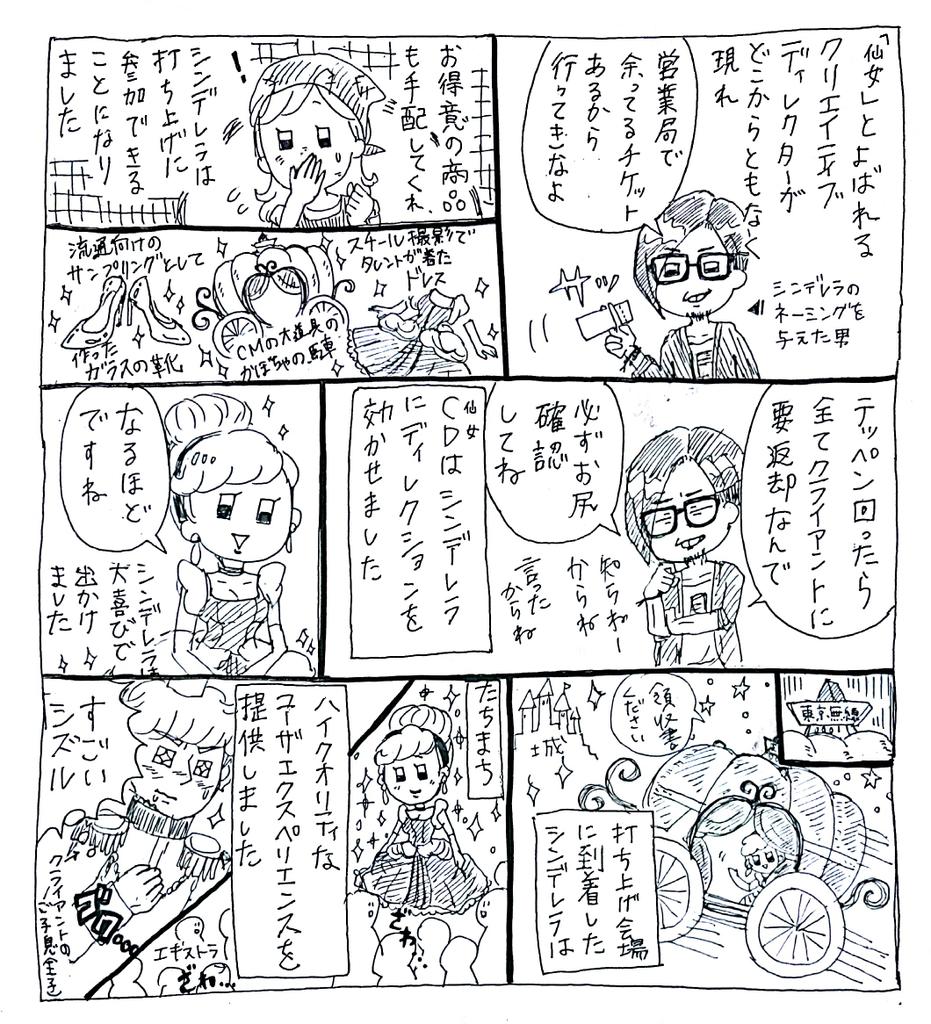 「仙女」とよばれる
クリエイティブ
ディレクターが
どこからともなく
現れ
営業局で
余ってるチケット
あるから
行ってきなよ
シンデレラの
ネーミングを
与えた男
お得意の商品
も手配してくれ、
シンデレラは
打ち上げに
参加できる
ことになり
ました
!
スチール撮影で
タレントが着た
ドレス
CMの大道具の
かぼちゃの馬車
流通向けの
サンプリングとして
作った
ガラスの靴
テッペン回ったら
全てクライアントに
要返却なんで
必ずお尻
確認
してね
知らねー
からね
言った
からね
仙女
CDはシンデレラ
にディレクションを
効かせました
なるほど
ですね
シンデレラは
大喜びで
出かけ
ました
東京無線
領収書
ください
城
打ち上げ会場
に到着した
シンデレラは
たちまち
ざわ…
ハイクオリティな
ユーザエクスペリエンスを
提供しました
エキストラ
ざわ…
すごい
シズル
ゴクッ…
クライアントの
ご子息(王子)